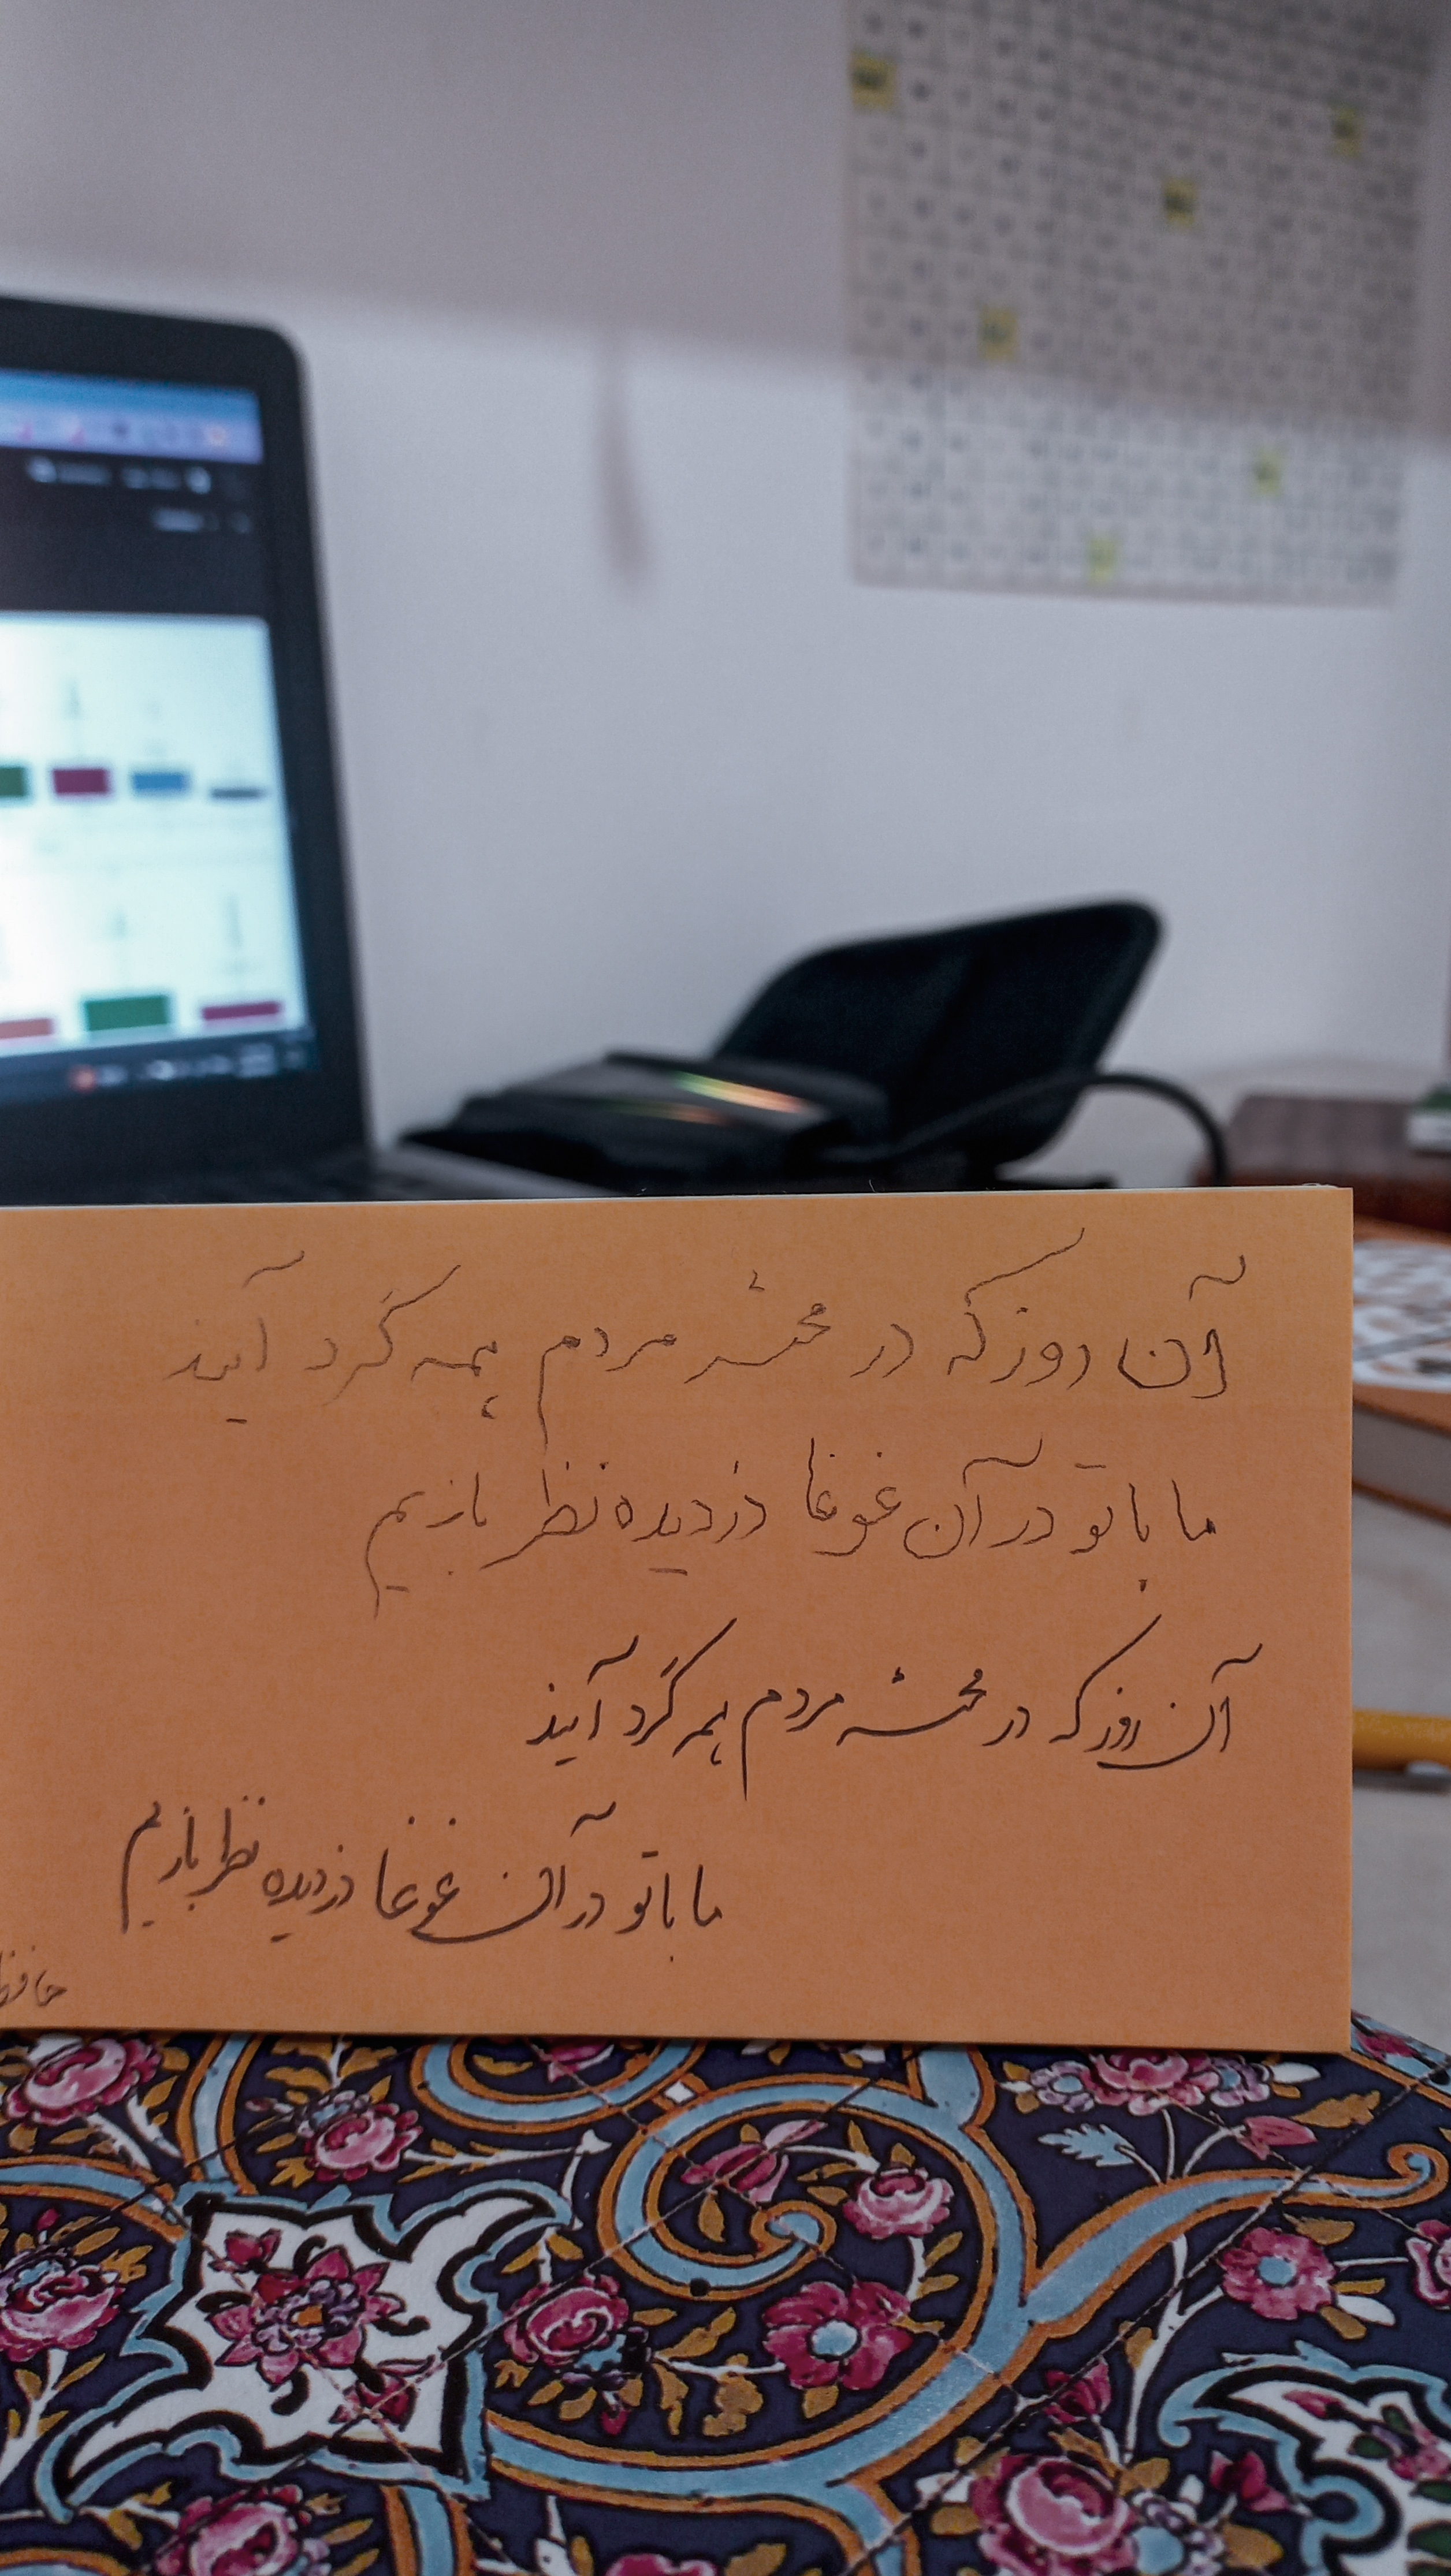 آن روز که در محشر مردم همه گرد آیند
ما با تو در آن غوغا دزدیده نظر بازیم
آن روز که در محشر مردم همه گرد آیند
ما با تو در آن غوغا دزدیده نظر بازیم
حافظ